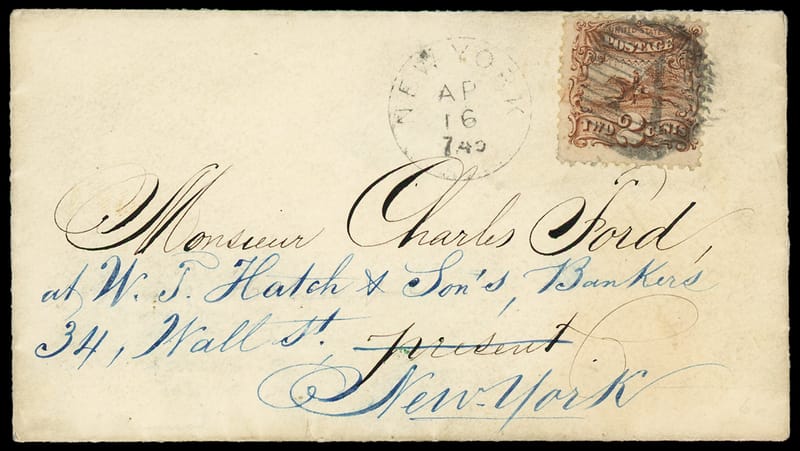 UNITED STATES
POSTAGE
TWO 2 CENTS
NEW YORK
AP
16
Monsieur Charles Ford,
at W. T. Hatch & Son's, Bankers
34, Wall St. present
New-York